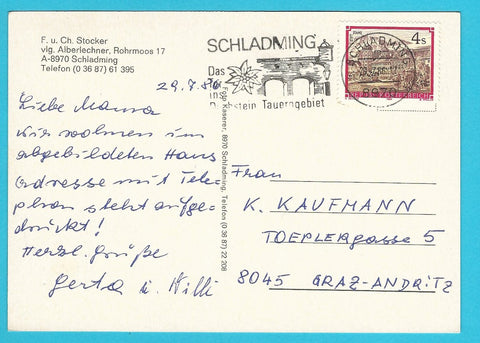 F. u. Ch. Stocker
vlg. Alberlechner, Rohrmoos 17
A-8970 Schladming
Telefon (0 36 87) 61 395
SCHLADMING
Das
im
Dachstein Tauerngebiet
4 S
REPUBLIK ÖSTERREICH
SCHLADMING
8970
29.7.86
Liebe Mama
wir wohnen im
abgebildeten Haus
Adresse mit Tele
phon steht aufge-
druckt!
Herzl. Grüße
Gerta u. Willi
Schladming, Telefon (0 36 87) 22 208
Frau
K. KAUFMANN
TOEPLERgasse 5
8045 GRAZ-ANDRITZ